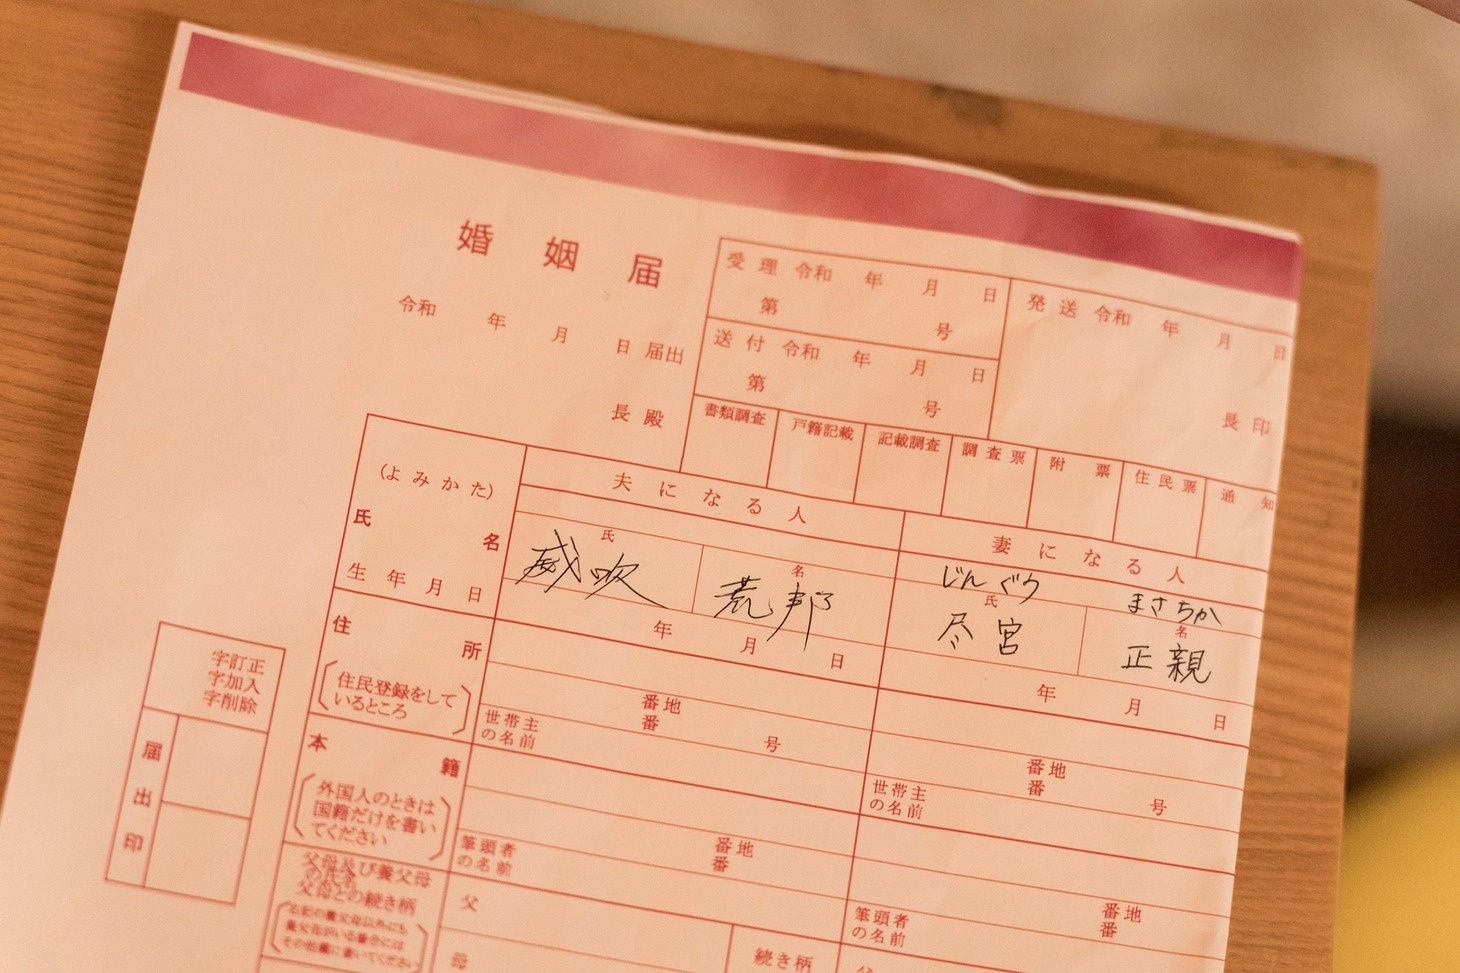 婚姻届
令和 年 月 日 届出
長 殿
受理 令和 年 月 日
第 号
送付 令和 年 月 日
第 号
発送 令和 年 月 日
長印
書類調査 戸籍記載 記載調査 調査票 附票 住民票 通知
(よみかた)
氏名
生年月日
夫になる人
氏 名
威吹 荒邦
年 月 日
妻になる人
じんぐう まさちか
氏 名
尽宮 正親
年 月 日
住所
(住民登録をして
いるところ)
番地
番 号
世帯主
の名前
番地
番 号
世帯主
の名前
本籍
(外国人のときは
国籍だけを書い
てください)
番地
番
筆頭者
の名前
番地
番
筆頭者
の名前
父母及び養父母
の氏名
父母との続き柄
(右記の養父母以外にも
養父母がいる場合には
その他欄に書いてください)
父
母
続き柄
父
字訂正
字加入
字削除
届出印